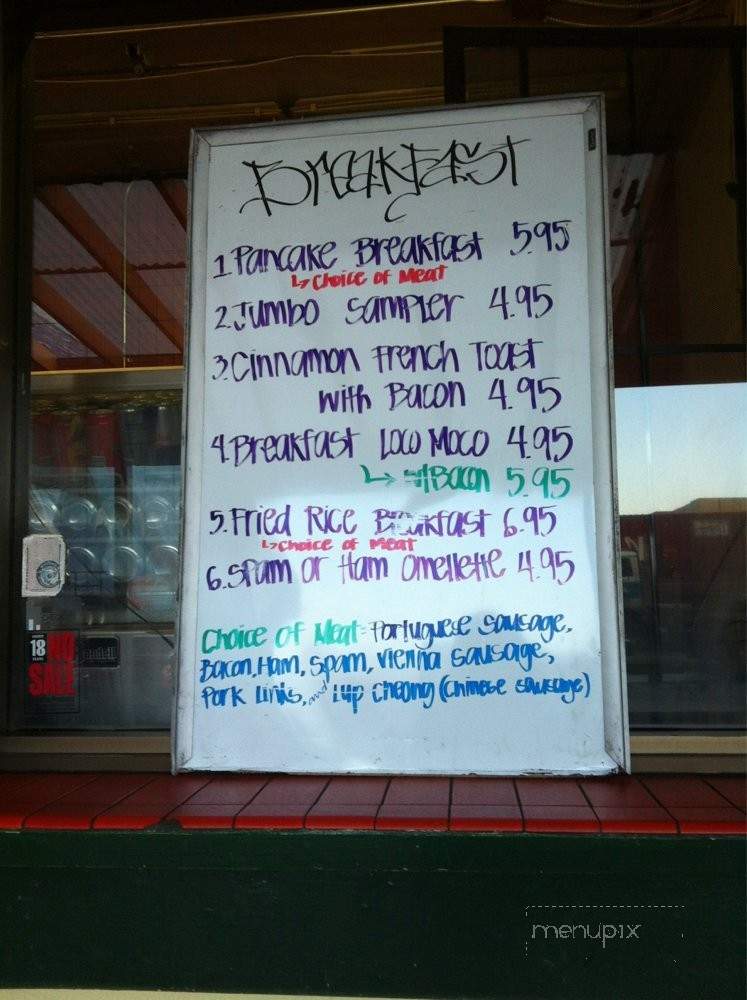 Breakfast
1. Pancake Breakfast 5.95
↳ Choice of Meat
2. Jumbo Sampler 4.95
3. Cinnamon French Toast
with Bacon 4.95
4. Breakfast Loco Moco 4.95
↳ w/Bacon 5.95
5. Fried Rice Breakfast 6.95
↳ Choice of Meat
6. Spam or Ham Omellette 4.95
Choice of Meat: Portuguese Sausage,
Bacon, Ham, Spam, Vienna Sausage,
Pork Links, and Lup Cheong (Chinese Sausage)
18
NO
SALE
menupix